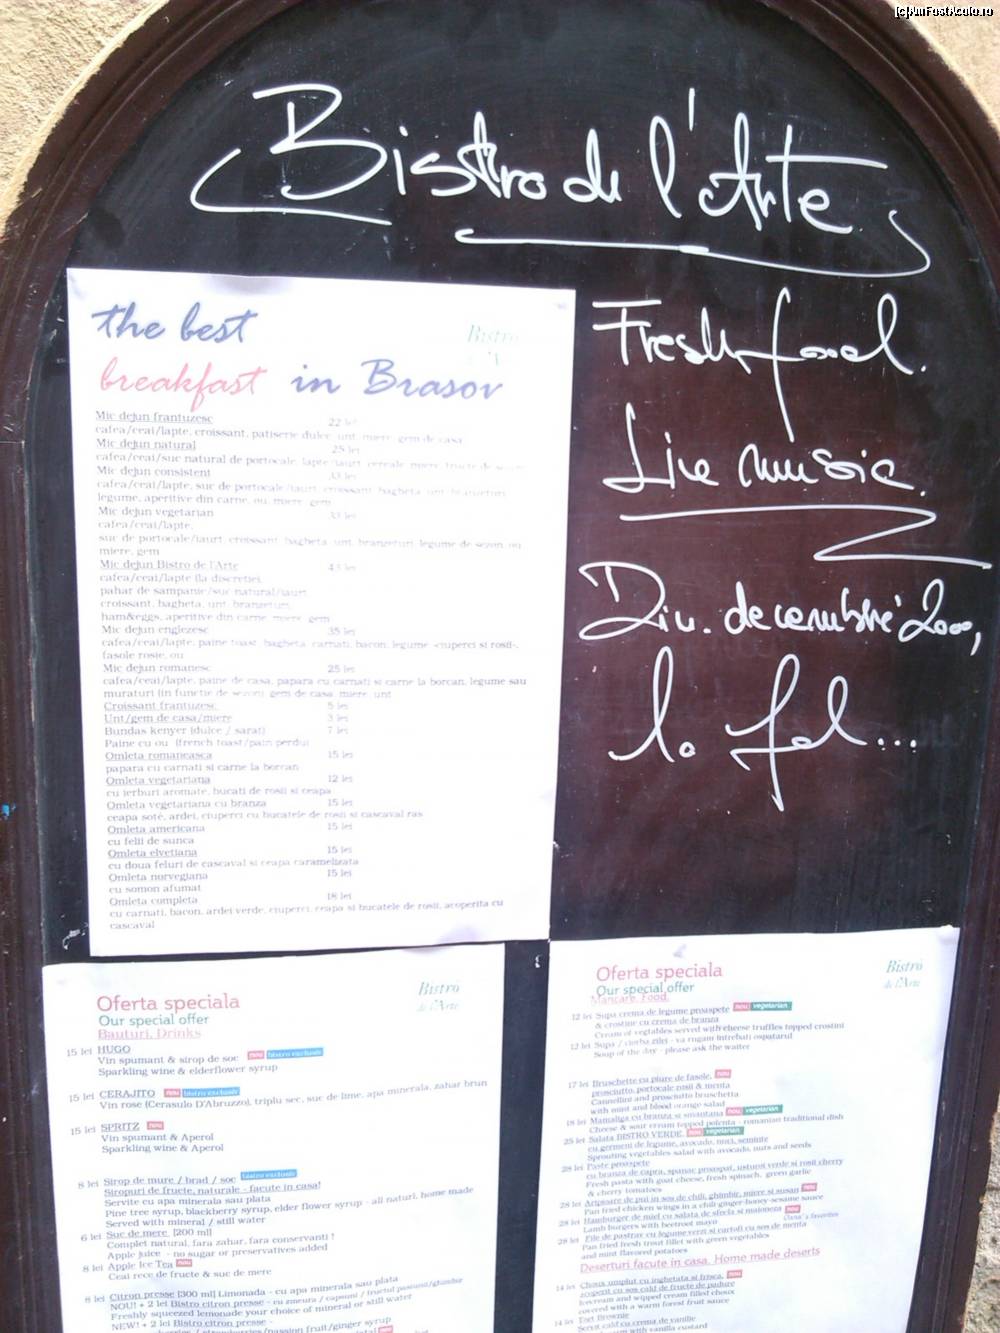 (c)AmFostAcolo.ro
Bistro de l'Arte
Fresh food.
Live music.
Din decembrie 2000,
la fel...
the best
breakfast in Brasov
Bistro
Mic dejun frantuzesc 22 lei
cafea/ceai/lapte, croissant, patiserie dulce, unt, miere, gem de casa
Mic dejun natural 25 lei
cafea/ceai/suc natural de portocale, lapte/iaurt, cereale, miere, fructe de
Mic dejun consistent 33 lei
cafea/ceai/lapte, suc de portocale/iaurt, croissant, bagheta, unt, branzeturi,
legume, aperitive din carne, ou, miere, gem
Mic dejun vegetarian 33 lei
cafea/ceai/lapte,
suc de portocale/iaurt, croissant, bagheta, unt, branzeturi, legume de sezon, ou
miere, gem
Mic dejun Bistro de l'Arte 43 lei
cafea/ceai/lapte (la discretie),
pahar de sampanie/suc natural/iaurt
croissant, bagheta, unt, branzeturi,
ham&eggs, aperitive din carne, miere, gem
Mic dejun englezesc 35 lei
cafea/ceai/lapte, paine toast, bagheta, carnati, bacon, legume -ciuperci si rosii-,
fasole rosie, ou
Mic dejun romanesc 25 lei
cafea/ceai/lapte, paine de casa, papara cu carnati si carne la borcan, legume sau
muraturi (in functie de sezon), gem de casa, miere, unt
Croissant frantuzesc 5 lei
Unt/gem de casa/miere 3 lei
Bundas kenyer (dulce / sarat) 7 lei
Paine cu ou (french toast/pain perdu)
Omleta romaneasca 15 lei
papara cu carnati si carne la borcan
Omleta vegetariana 12 lei
cu ierburi aromate, bucati de rosii si ceapa
Omleta vegetariana cu branza 15 lei
ceapa soté, ardei, ciuperci cu bucatele de rosii si cascaval ras
Omleta americana 15 lei
cu felii de sunca
Omleta elvetiana 15 lei
cu doua feluri de cascaval si ceapa caramelizata
Omleta norvegiana 15 lei
cu somon afumat
Omleta completa 18 lei
cu carnati, bacon, ardei verde, ciuperci, ceapa si bucatele de rosii, acoperita cu
cascaval
Bistro
de l'Arte
Oferta speciala
Our special offer
Bauturi. Drinks
15 lei HUGO
Vin spumant & sirop de soc nou bistro exclusiv
Sparkling wine & elderflower syrup
15 lei CERAJITO nou bistro exclusiv
Vin rose (Cerasulo D'Abruzzo), triplu sec, suc de lime, apa minerala, zahar brun
15 lei SPRITZ nou
Vin spumant & Aperol
Sparkling wine & Aperol
8 lei Sirop de mure / brad / soc bistro exclusiv
Siropuri de fructe, naturale - facute in casa!
Servite cu apa minerala sau plata
Pine tree syrup, blackberry syrup, elder flower syrup - all naturl, home made
Served with mineral / still water
6 lei Suc de mere [200 ml]
Complet natural, fara zahar, fara conservanti !
Apple juice - no sugar or preservatives added
8 lei Apple Ice Tea nou
Ceai rece de fructe & suc de mere
8 lei Citron presse [300 ml] Limonada - cu apa minerala sau plata
NOU! + 2 lei Bistro citron presse - cu zmeura / capsuni / fructul pasiunii/ghimbir
Freshly squeezed lemonade your choice of mineral or still water
NEW! + 2 lei Bistro citron presse -
/ strawberries /passion fruit/ginger syrup
Bistro
de l'Arte
Oferta speciala
Our special offer
Mancare. Food.
12 lei Supa crema de legume proaspete nou vegetarian
& crostine cu crema de branza
Cream of vegtables served with cheese truffles topped crostini
12 lei Supa / ciorba zilei - va rugam intrebati ospatarul
Soup of the day - please ask the waiter
17 lei Bruschette cu piure de fasole, nou
prosciutto, portocale rosii & menta
Cannellini and prosciutto bruschetta
with mint and blood orange salad
18 lei Mamaliga cu branza si smantana nou vegetarian
Cheese & sour cream topped polenta - romanian traditional dish
25 lei Salata BISTRO VERDE nou vegetarian
cu germeni de legume, avocado, nuci, seminte
Sprouting vegetables salad with avocado, nuts and seeds
28 lei Paste proaspete
cu branza de capra, spanac proaspat, usturoi verde si rosii cherry
Fresh pasta with goat cheese, fresh spinach, green garlic
& cherry tomatoes
28 lei Aripioare de pui in sos de chili, ghimbir, miere si susan nou
Pan fried chicken wings in a chili-ginger-honey-sesame sauce
28 lei Hamburger de miel cu salata de sfecla si maioneza nou
Lamb burgers with beetroot mayo Oana's favorites
28 lei File de pastrav cu legume verzi si cartofi cu sos de menta
Pan fried fresh trout fillet with green vegetables
and mint flavored potatoes
Deserturi facute in casa. Home made deserts
14 lei Choux umplut cu inghetata si frisca, nou
acoperit cu sos cald de fructe de padure
Icecream and wipped cream filled choux
covered with a warm forest fruit sauce
14 lei Tort Brownie
Servit cald cu crema de vanilie
with vanilla custard